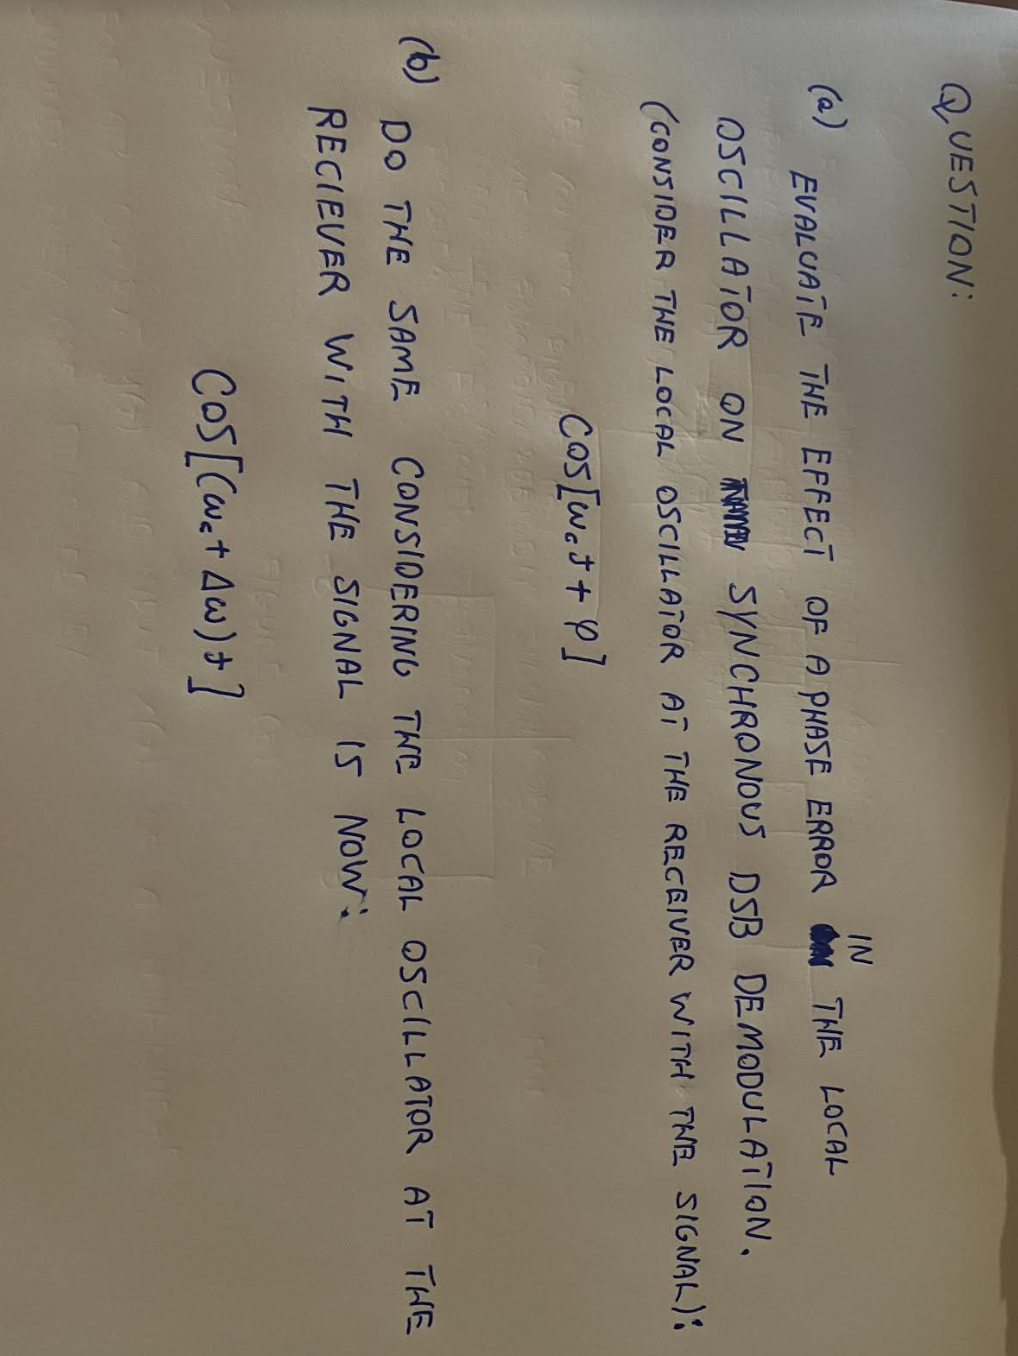 QUESTION:
(a) EVALUATE THE EFFECT OF A PHASE ERROR IN THE LOCAL
OSCILLATOR ON SYNCHRONOUS DSB DEMODULATION.
(CONSIDER THE LOCAL OSCILLATOR AT THE RECEIVER WITH THE SIGNAL):
COS[ωct + φ]
(b) DO THE SAME CONSIDERING THE LOCAL OSCILLATOR AT THE
RECIEVER WITH THE SIGNAL IS NOW:
COS[(ωc + Δω)t]